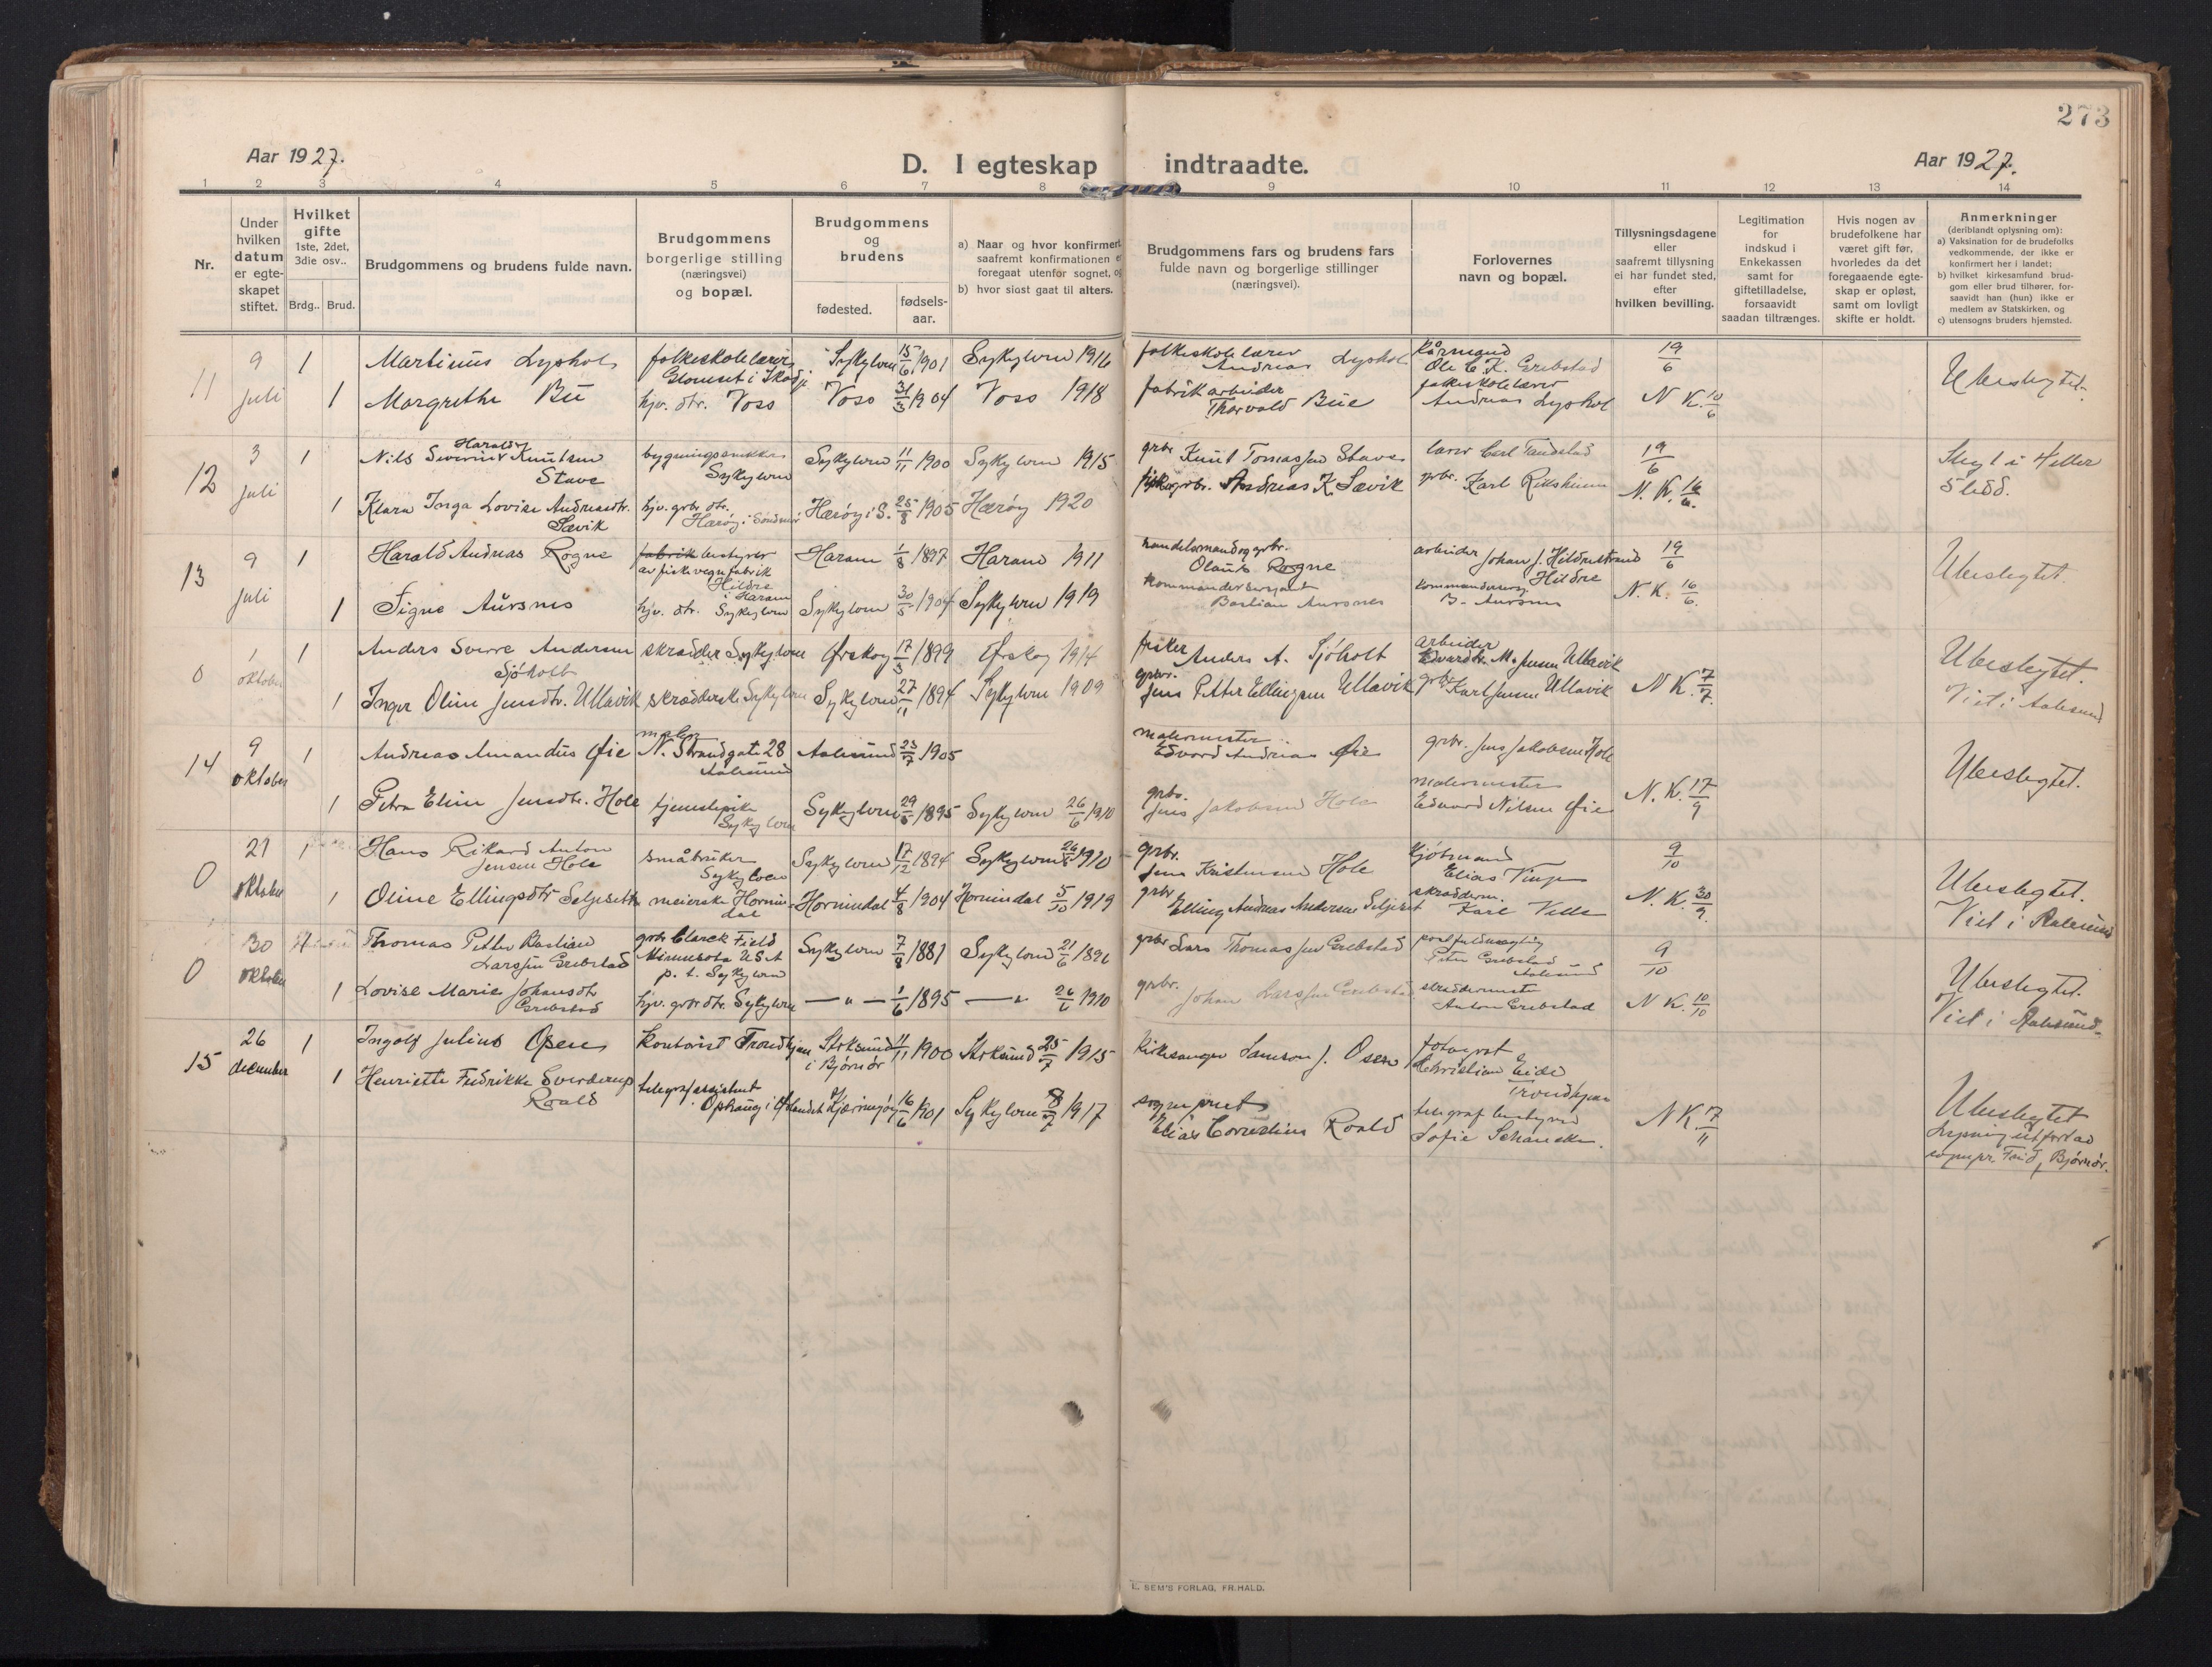 273
Aar 1927.
D. I egteskap indtraadte.
Aar 1927.
1 2 3 4 5 6 7 8 9 10 11 12 13 14
Nr.
Under hvilken datum er egte-skapet stiftet.
Hvilket gifte 1ste, 2det, 3die osv..
Brdg.. Brud.
Brudgommens og brudens fulde navn.
Brudgommens borgerlige stilling (næringsvei) og bopæl.
Brudgommens og brudens
fødested.
fødsels-aar.
a) Naar og hvor konfirmert saafremt konfirmationen er foregaat utenfor sognet, og
b) hvor sidst gaat til alters.
Brudgommens fars og brudens fars fulde navn og borgerlige stillinger (næringsvei).
Forlovernes navn og bopæl.
Tillysningsdagene eller saafremt tillysning ei har fundet sted, efter hvilken bevilling.
Legitimation for indskud i Enkekassen samt for giftetilladelse, forsaavidt saadan tiltrænges.
Hvis nogen av brudefolkene har været gift før, hvorledes da det foregaaende egte-skap er opløst, samt om lovligt skifte er holdt.
Anmerkninger
(deriblandt oplysning om):
a) Vaksination for de brudefolks vedkommende, der ikke er konfirmert her i landet;
b) hvilket kirkesamfund brud-gom eller brud tilhører, for-saavidt han (hun) ikke er medlem av Statskirken, og
c) utensogns bruders hjemsted.
11 9 juli 1 Martinus Lyshol folkeskolelærer Sykylven 15/6 1901 Sykylven 1916 folkeskolelærer Andreas Lyshol Ole C. K. Grebstad 19/6 Ubeslegtet.
1 Margrethe Bü hjv. dtr. Voss Voss 31/3 1904 Voss 1918 fabrikarbeider Thorvald Büe folkeskolelærer Andreas Lyshol N K. 10/6
12 3 juli 1 Nils Severin Harald Knutsen Stave bygningssnikker Sykylven Sykylven 11/11 1900 Sykylven 1915 grbr. Knut Tomassen Stave lærer Carl Tandstad 19/6 Skyl i 4 eller 5 ledd.
1 Klara Inga Lovise Andreasdtr. Sævik hjv. grbr. dtr. Herøy i Söndmör Herøy i S. 25/8 1905 Herøy 1920 grbr. Andreas K. Sævik grbr. Karl Riksheim N. K. 16/6.
13 9 juli 1 Harald Andreas Rogne fabrik bestyrer av fiskevegnfabrik Hildre i Haram Haram 1/8 1897 Haram 1911 handelsmand og grbr. Olaus Rogne arbeider Johan J. Hildrestrand Hildre 19/6 Ubeslegtet.
1 Signe Aursnes hjv. dtr. Sykylven Sykylven 30/5 1904 Sykylven 1919 kommandersersjant Bastian Aursnes kommandersersj. B. Aursnes N. K. 16/6.
0 1 oktober 1 Anders Sverre Andersen Sjøholt skrædder Sykylven Ørskog 17/3 1899 Ørskog 1914 fisker Anders A. Sjøholt arbeider Edvard M. Jensen Ullavik Ubeslegtet.
1 Inger Oline Jensdtr. Ullavik skrædderske Sykylven Sykylven 27/11 1894 Sykylven 1909 grbr. Jens Petter Ellingsen Ullavik grbr. Karl Jensen Ullavik N K. 7/7. Viet i Aalesund
14 9 oktober 1 Andreas Amandus Øie maler N. Strandgate 28 Aalesund Aalesund 23/7 1905 malermester Edvard Andreas Øie grbr. Jens Jakobsen Hole Ubeslegtet.
1 Petra Eline Jensdtr. Hole tjenestepike Sykylven Sykylven 1895 Sykylven 26/6 1910 grbr. Jens Jakobsen Hole malermester Edvard Nilsen Øie N. K. 17/9
0 21 oktober 1 Hans Rikard Anton Jensen Hole småbruker Sykylven Sykylven 17/12 1894 Sykylven 26/6 1910 grbr. Jens Kristensen Hole Kjøtmand Elias 9/10 Ubeslegtet.
1 Oline Ellingsdtr Seljeseth meierske Hornindal Hornindal 4/8 1904 Hornindal 5/10 1919 grbr Elling Andreas Andersen Seljeset skrædderm. Karl Velle N. K. 30/9. Viet i Aalesund
0 30 oktober Thomas Petter Bastian Larssen Grebstad grbr Clarck Field Minnesota USA p. t. Sykylven Sykylven 7/8 1881 Sykylven 21/6 1896 grbr Lars Thomassen Grebstad Peter Grebstad Aalesund 9/10 Ubeslegtet.
1 Lovise Marie Johansdtr Grebstad hjv. grbr dtr. Sykylven — " — 1/6 1895 — " 26/6 1910 grbr. Johan Larssen Grebstad skræddermester Anton Grebstad N K. 10/10 Viet i Aalesund
15 26 december 1 Ingolf Julius Osen kontorist Trondhjem Stoksund i Bjørnør 11/11 1900 Stoksund 25/7 1915 Kirkesanger Samson J. Osen fotograf Christian Eide Trondhjem
1 Henriette Fredrikke Sverderup Roald telegrafassistent Ophaug i Ørlandet Kjerringøy 16/6 1901 Sykylven 1917 sogneprest Elias Cornelius Roald telegraf bestyrer Sofie Schancke. N K. 17/11 Ubeslegtet
Lysning utført av sognepr. Bjørnør.
E. SEM'S FORLAG, FR.HALD.